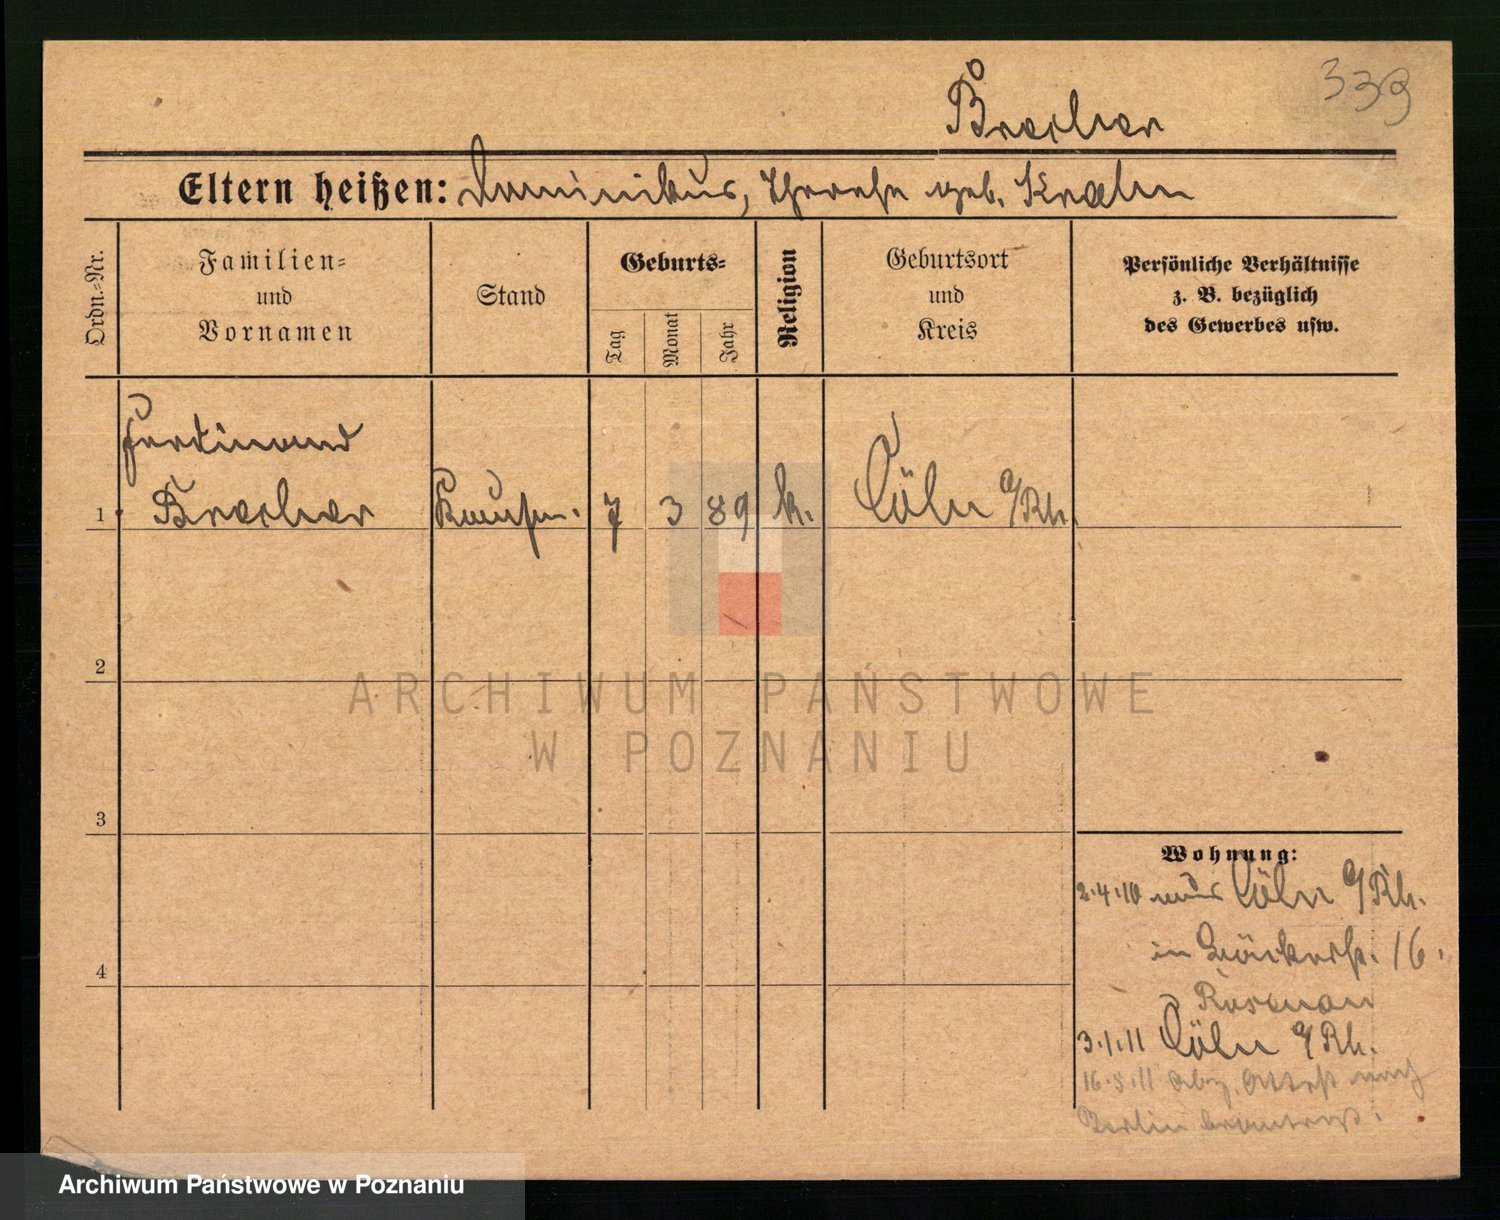 339
Bracher
Eltern heißen: Dominikus, Therese geb. Krahn
Ordn.-Nr.
Familien-
und
Vornamen
Stand
Geburts-
Tag
Monat
Jahr
Religion
Geburtsort
und
Kreis
Persönliche Verhältnisse
z. B. bezüglich
des Gewerbes usw.
Ferdinand
1 Bracher Kaufm. 7 3 89 k. Cöln a/Rh.
2
3
4
Wohnung:
2.4.10 aus Cöln a/Rh.
in Bäckerst. 16.
3.1.11 Cöln a/Rh.
16.5.11 Abz. Attest nach
Berlin beantragt.
ARCHIWUM PAŃSTWOWE
W POZNANIU
Archiwum Państwowe w Poznaniu